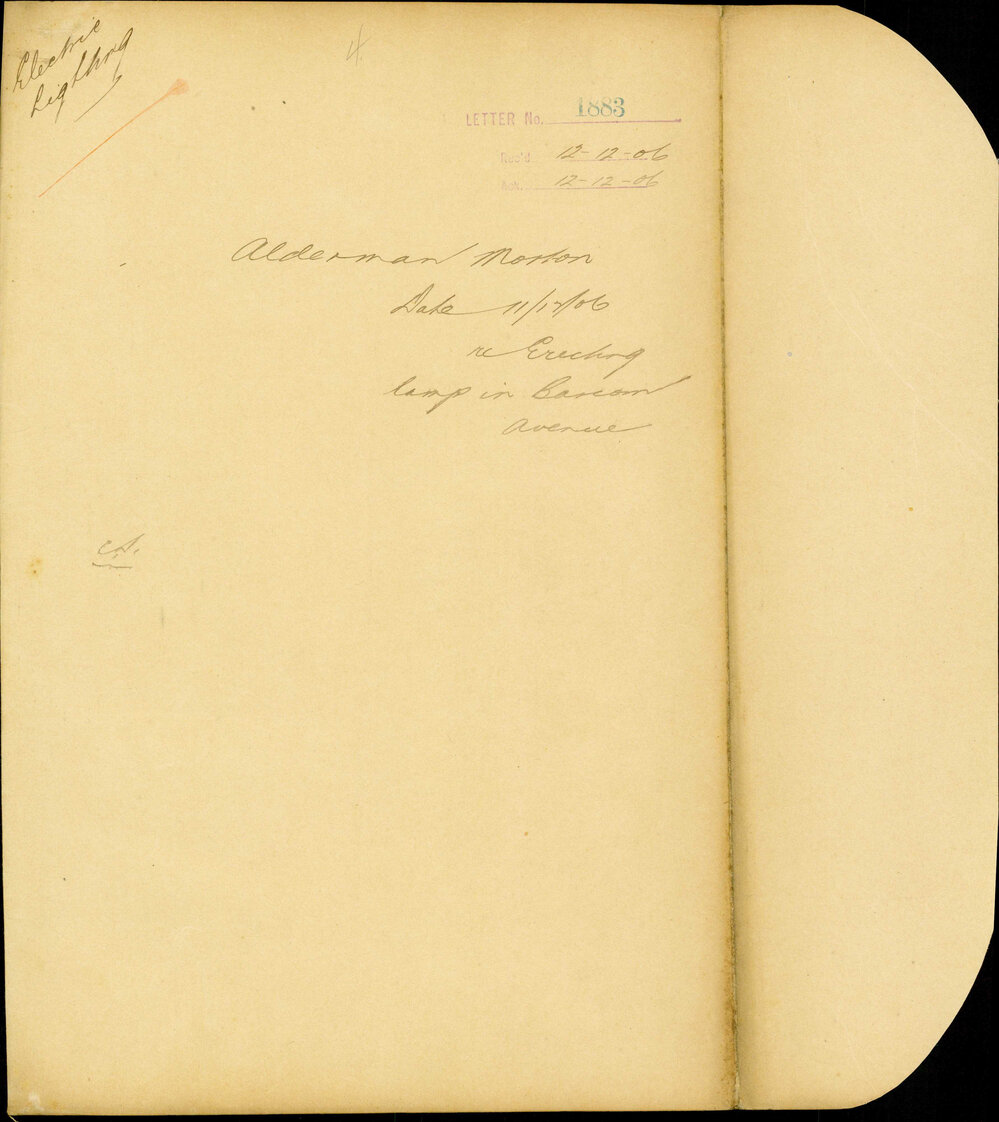 Electric
Lighting
4
LETTER No. 1883
Rec'd. 12-12-06
Ack. 12-12-06
Alderman Morton
Date 11/12/06
re Erecting
lamp in Barcom
Avenue